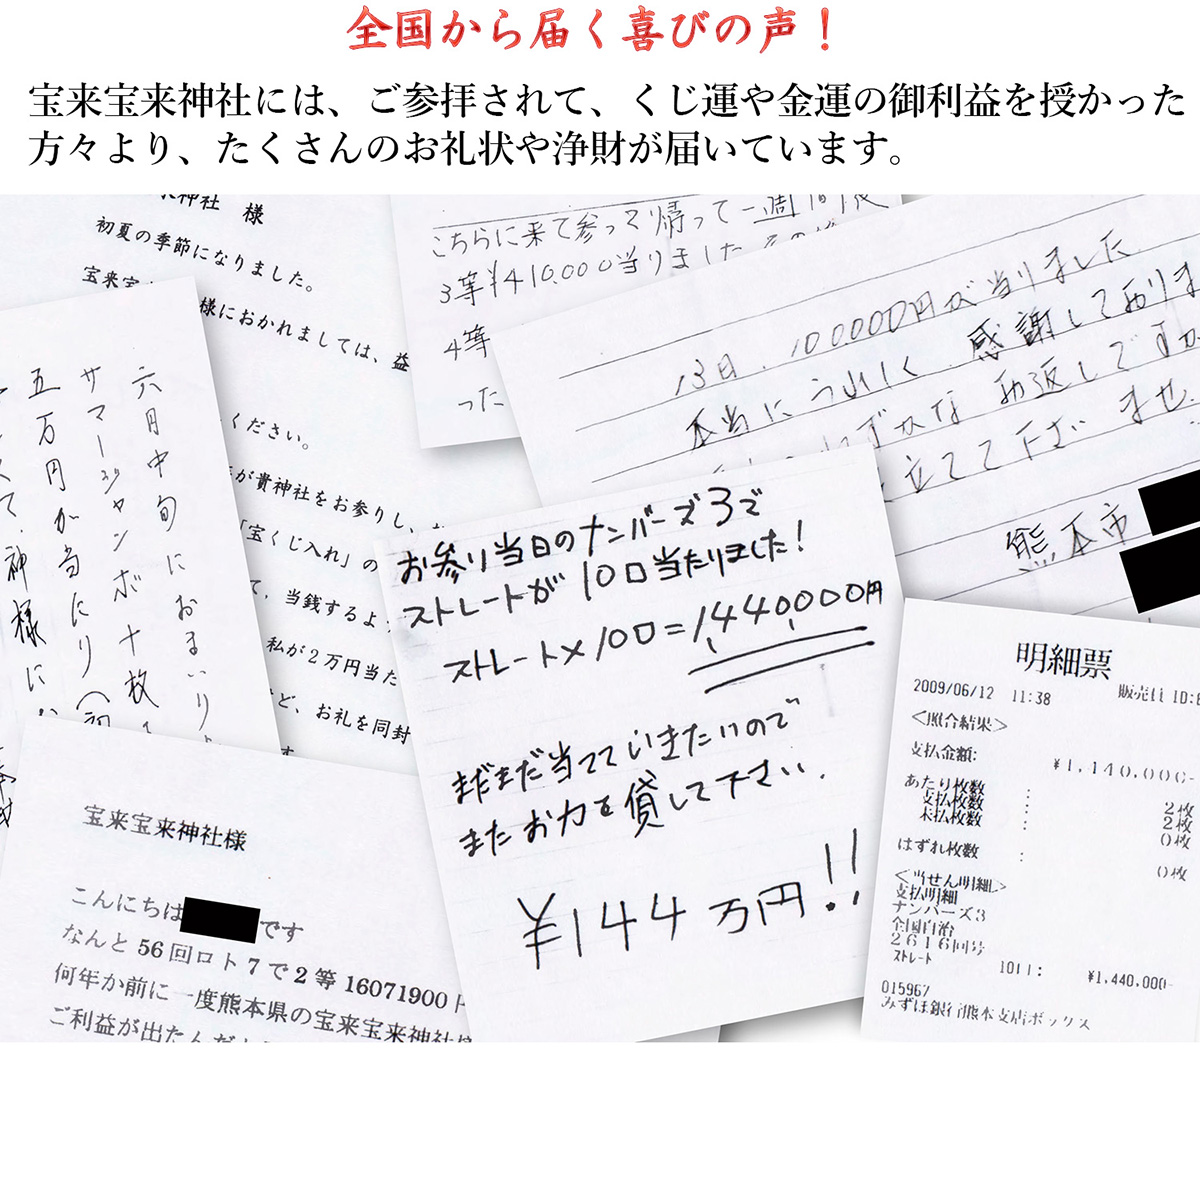 全国から届く喜びの声！
宝来宝来神社には、ご参拝されて、くじ運や金運の御利益を授かった
方々より、たくさんのお礼状や浄財が届いています。
神社 様
初夏の季節になりました。
様におかれましては、益
ください。
が貴神社をお参りし、
「宝くじ入れ」の
て、当銭するよ
私が2万円当た
ど、お礼を同封
こちらに来て参って帰って一週間後
3等¥410,000当りました
4等
った
13日、100000円が当りました
本当にうれしく 感謝しており
ずかな お返しですが
立てて下さいませ
熊本市
六月中旬におまいり
サマージャンボ十枚
五万円が当たり
神様に
お参り当日のナンバーズ3で
ストレートが10口当たりました！
ストレート×10口=1,440,000円
まだまだ当てていきたいので
またお力を貸して下さい.
¥144万円!!
明細票
2009/06/12 11:38 販売員ID:
<照合結果>
支払金額: ¥1,140,000-
あたり枚数 : 2枚
支払枚数 : 2枚
未払枚数 : 0枚
はずれ枚数 : 0枚
<当せん明細>
支払明細
ナンバーズ3
全国自治
2616回号
ストレート 10口: ¥1,440,000-
015967
みずほ銀行熊本支店ボックス
宝来宝来神社様
こんにちは です
なんと56回ロト7で2等16071900円
何年か前に一度熊本県の宝来宝来神社
ご利益が出たんだ